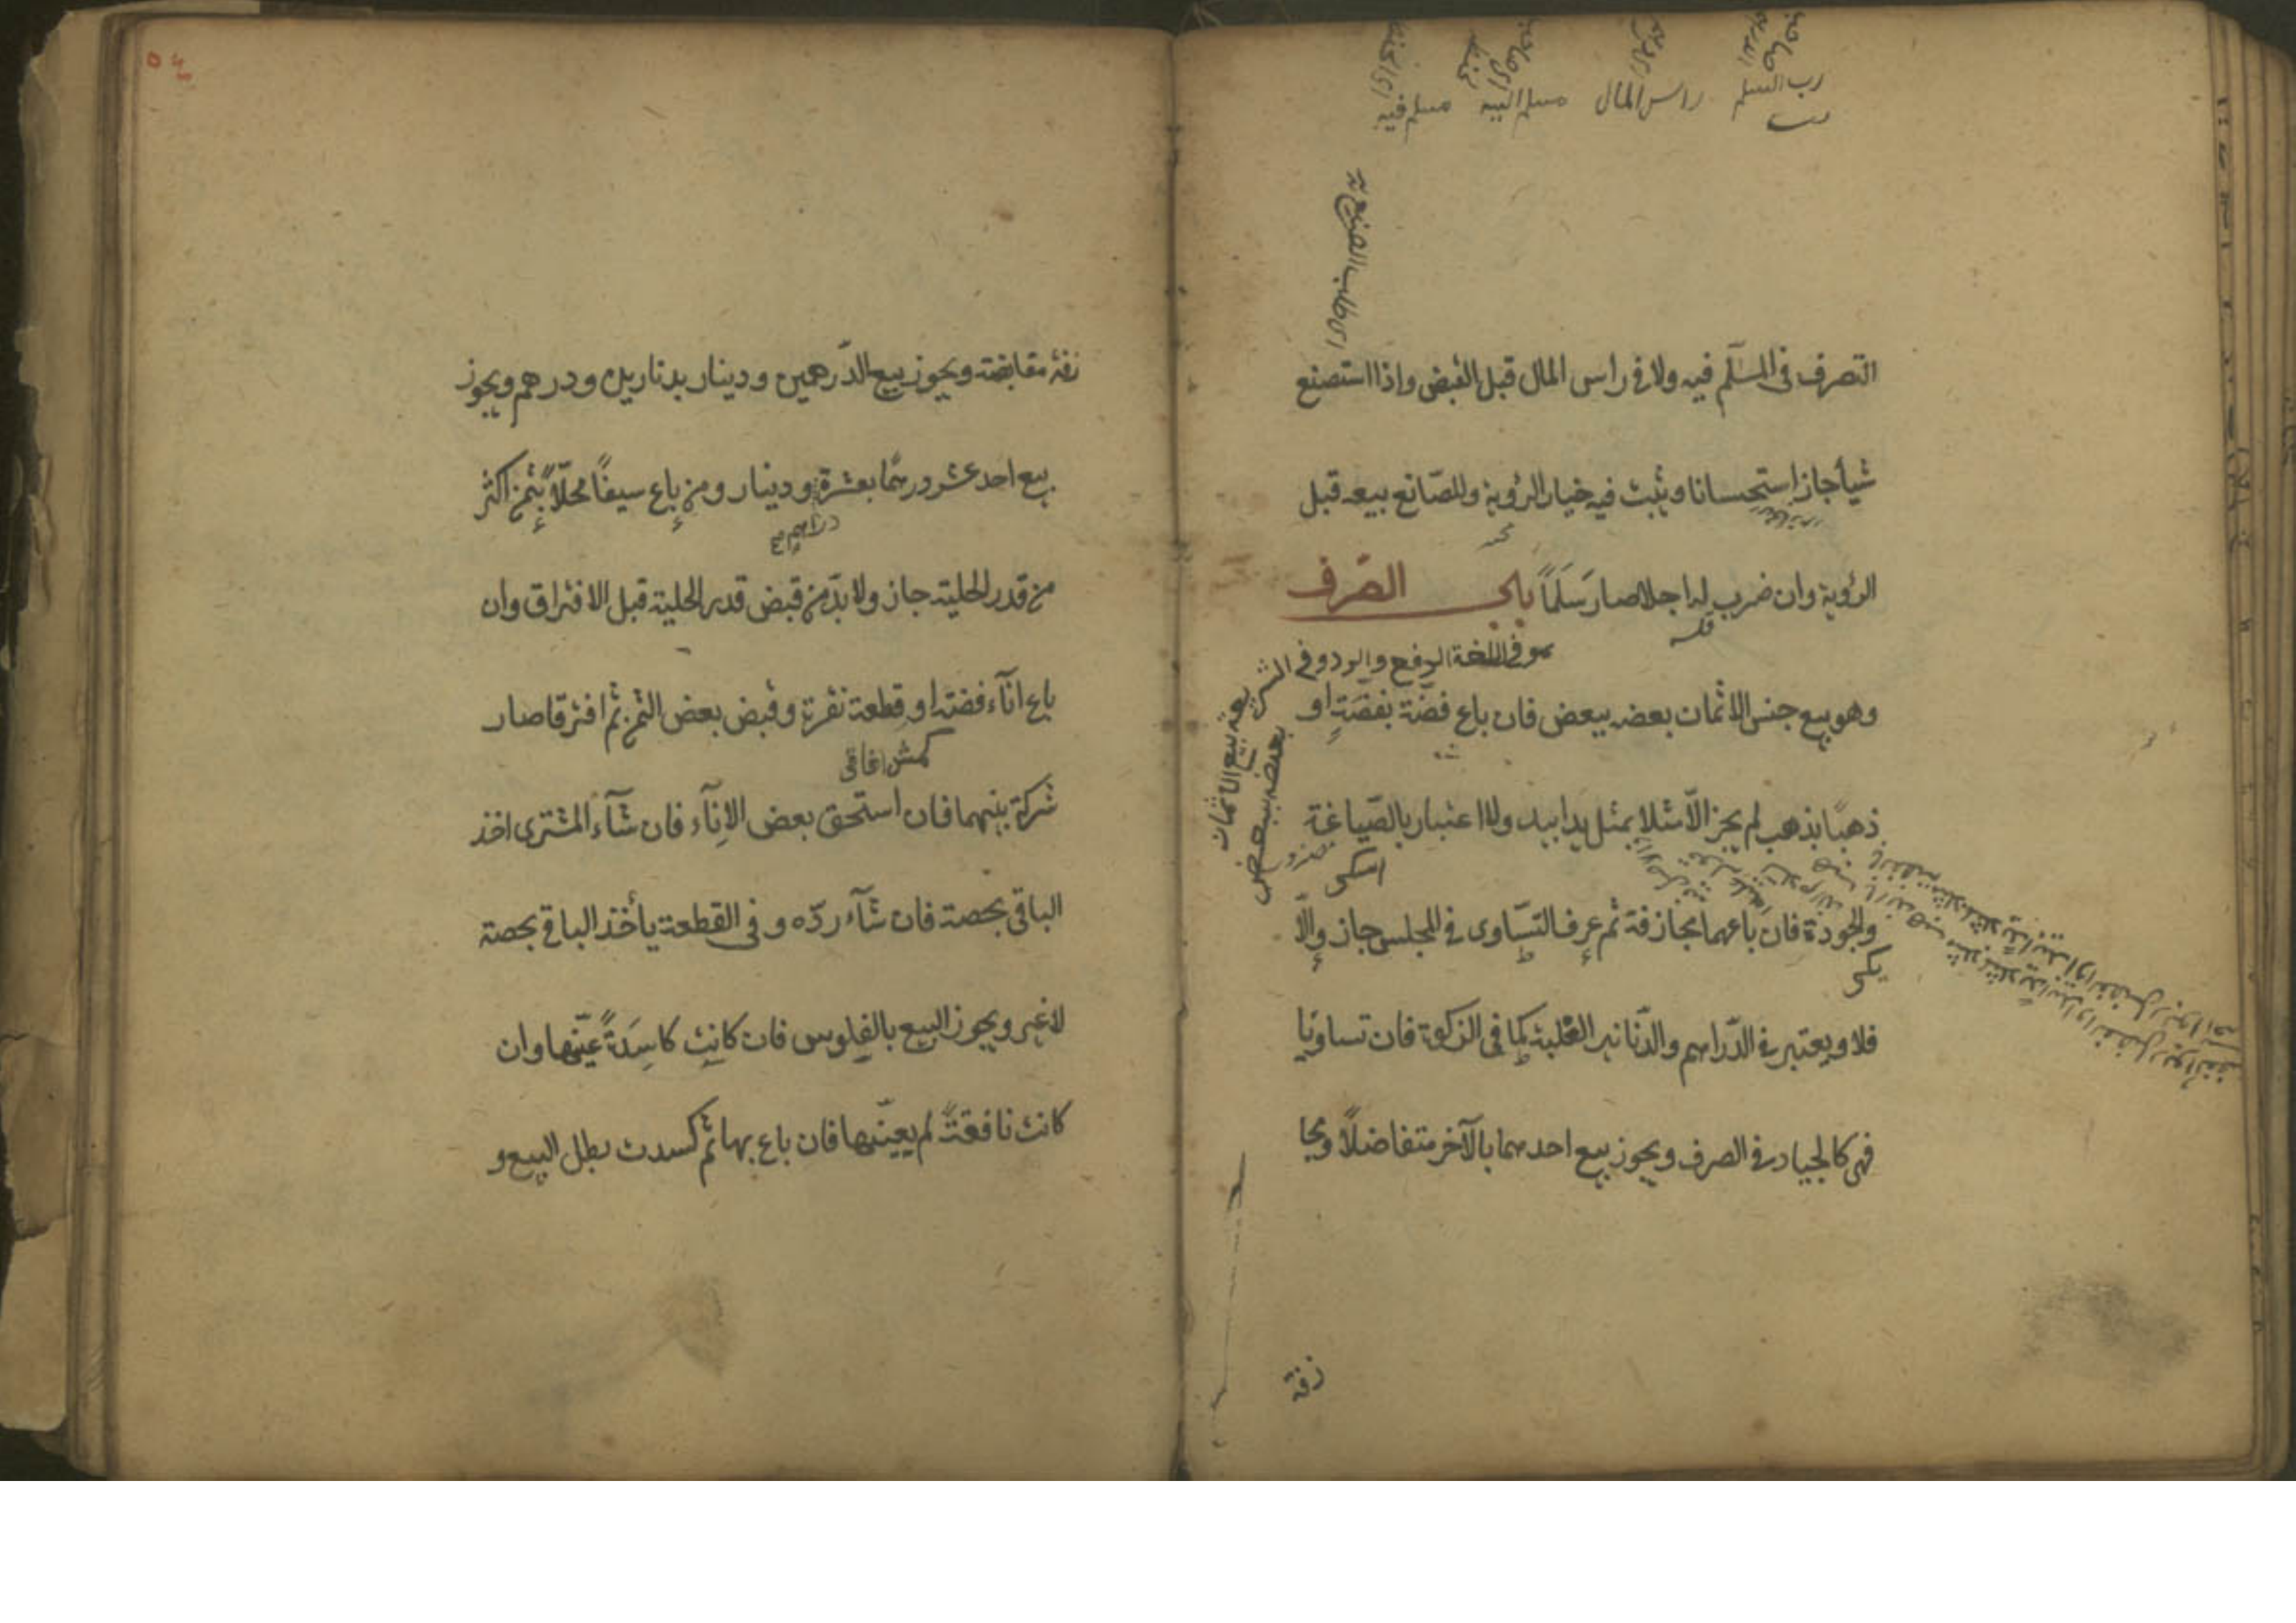 رب السلم راس المال مسلم اليه مسلم فيه
رب
اى طلب الصنع
التصرف فى المسلّم فيه ولا فى راس المال قبل القبض واذا استصنع
شيأ جاز استحسانا ويثبت فيه خيار الرؤية وللصّانع بيعه قبل
الرؤية وان ضرب له اجلا صار سَلَمًا باب الصّرف
هو فى اللغة الدفع والرد وفى الشر
يعة بيع الاثمان
بعضه ببعض
وهو بيع جنس الاثمان بعضه ببعض فان باع فضّة بفضّةٍ او
ذهبًا بذهب لم يجز الّا مثلا بمثل يدا بيد ولا اعتبار بالصّياغة
والجودة فان باعهما مجازفة ثم عرف التسّاوى فى المجلس جاز والّا
فلا ويعتبر فى الدّراهم والدّنانير الغلبة كما فى الزكوة فان تساوَيا
فهى كالجياد فى الصرف ويجوز بيع احدهما بالآخر متفاضلًا ومجا
زفة
زفة مقابضة ويجوز بيع الدّرهمين ودينار بدنارين ودرهم ويجوز
بيع احد عشر درهمًا بعشرة ودينار ومن باع سيفًا محلّاً بثمن اكثر
دراهم
من قدر الحلية جاز ولا بدّ من قبض قدر الحلية قبل الافتراق وان
باع انآء فضة او قطعة نقرة وقبض بعض الثمن ثم افترقا صار
شركة بينهما فان استحق بعض الانآء فان شآء المشترى اخذ
الباقى بحصة فان شآء ردّه وفى القطعة يأخذ الباقى بحصة
لا غير ويجوز البيع بالفلوس فان كانت كاسِدَةً عيّنها وان
كانت نافقةً لم يعيّنها فان باع بها ثم كسدت بطل البيع و